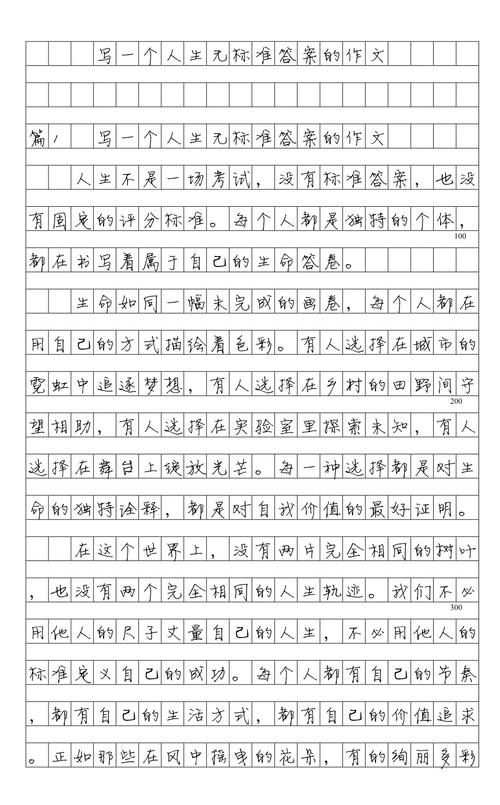 写一个人生无标准答案的作文
篇1 写一个人生无标准答案的作文
人生不是一场考试，没有标准答案，也没
有固定的评分标准。每个人都是独特的个体，
100
都在书写着属于自己的生命答卷。
生命如同一幅未完成的画卷，每个人都在
用自己的方式描绘着色彩。有人选择在城市的
霓虹中追逐梦想，有人选择在乡村的田野间守
200
望相助，有人选择在实验室里探索未知，有人
选择在舞台上绽放光芒。每一种选择都是对生
命的独特诠释，都是对自我价值的最好证明。
在这个世界上，没有两片完全相同的树叶
，也没有两个完全相同的人生轨迹。我们不必
300
用他人的尺子丈量自己的人生，不必用他人的
标准定义自己的成功。每个人都有自己的节奏
，都有自己的生活方式，都有自己的价值追求
。正如那些在风中摇曳的花朵，有的绚丽多彩